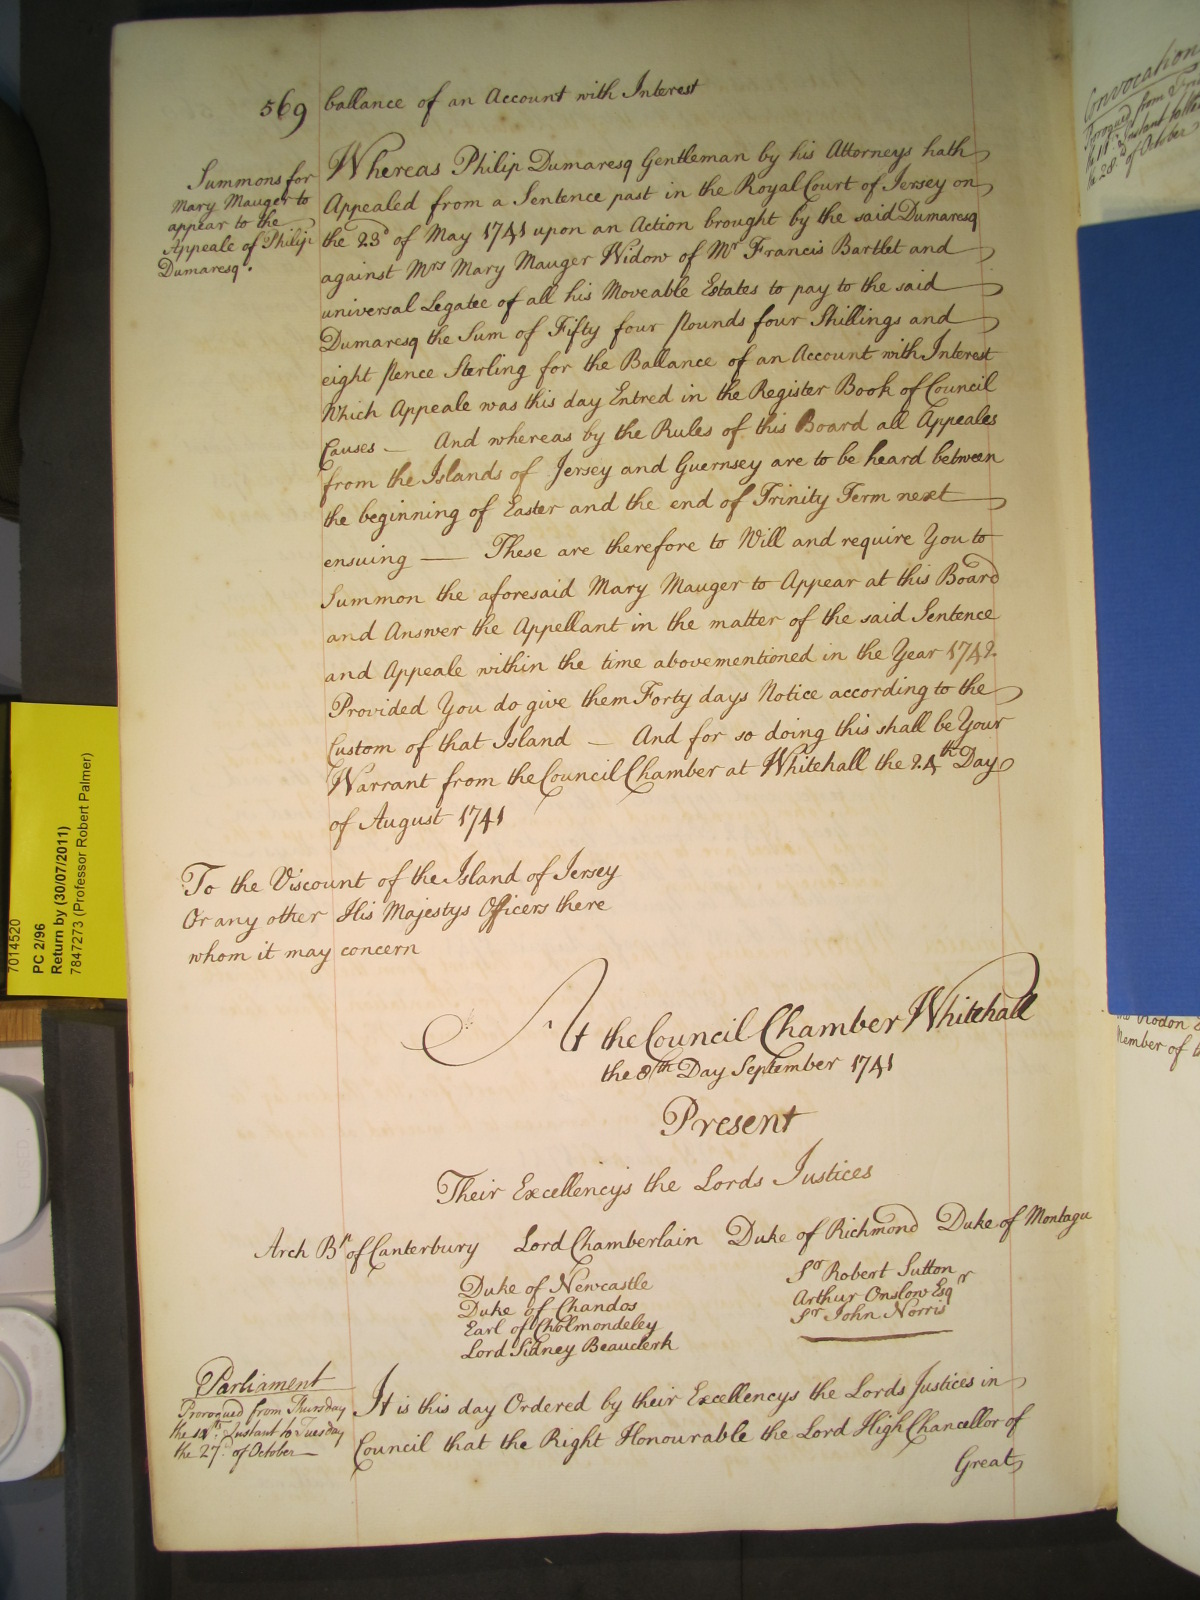 569
ballance of an Account with Interest
Summons for
Mary Mauger to
appear to the
Appeale of Philip
Dumaresq.
Whereas Philip Dumaresq Gentleman by his Attorneys hath
Appealed from a Sentence past in the Royal Court of Jersey on
the 23d of May 1741 upon an Action brought by the said Dumaresq
against Mrs Mary Mauger Widow of Mr Francis Bartlet and
universal Legatee of all his Moveable Estates to pay to the said
Dumaresq the Sum of Fifty four pounds four Shillings and
eight pence Sterling for the Ballance of an Account with Interest
Which Appeale was this day Entred in the Register Book of Council
Causes — And whereas by the Rules of this Board all Appeales
from the Islands of Jersey and Guernsey are to be heard between
the beginning of Easter and the end of Trinity Term next
ensuing — These are therefore to Will and require You to
Summon the aforesaid Mary Mauger to Appear at this Board
and Answer the Appellant in the matter of the said Sentence
and Appeale within the time abovementioned in the Year 1742.
Provided You do give them Forty days Notice according to the
Custom of that Island — And for so doing this shall be Your
Warrant from the Council Chamber at Whitehall the 24th Day
of August 1741
To the Viscount of the Island of Jersey
Or any other His Majestys Officers there
whom it may concern
At the Council Chamber Whitehall
the 8th Day September 1741
Present
Their Excellencys the Lords Justices
Arch Bp of Canterbury Lord Chamberlain Duke of Richmond Duke of Montagu
Duke of Newcastle
Duke of Chandos
Earl of Cholmondeley
Lord Sidney Beauclerk
Sr Robert Sutton
Arthur Onslow Esqr
Sr John Norris
Parliament
Prorogued from Thursday
the Instant to Tuesday
the 27 of October
It is this day Ordered by their Excellencys the Lords Justices in
Council that the Right Honourable the Lord High Chancellor of
Great
7014520
PC 2/96
Return by (30/07/2011)
7847273 (Professor Robert Palmer)
Convocation
Prorogued from
Instant to the
28 of October
Member of